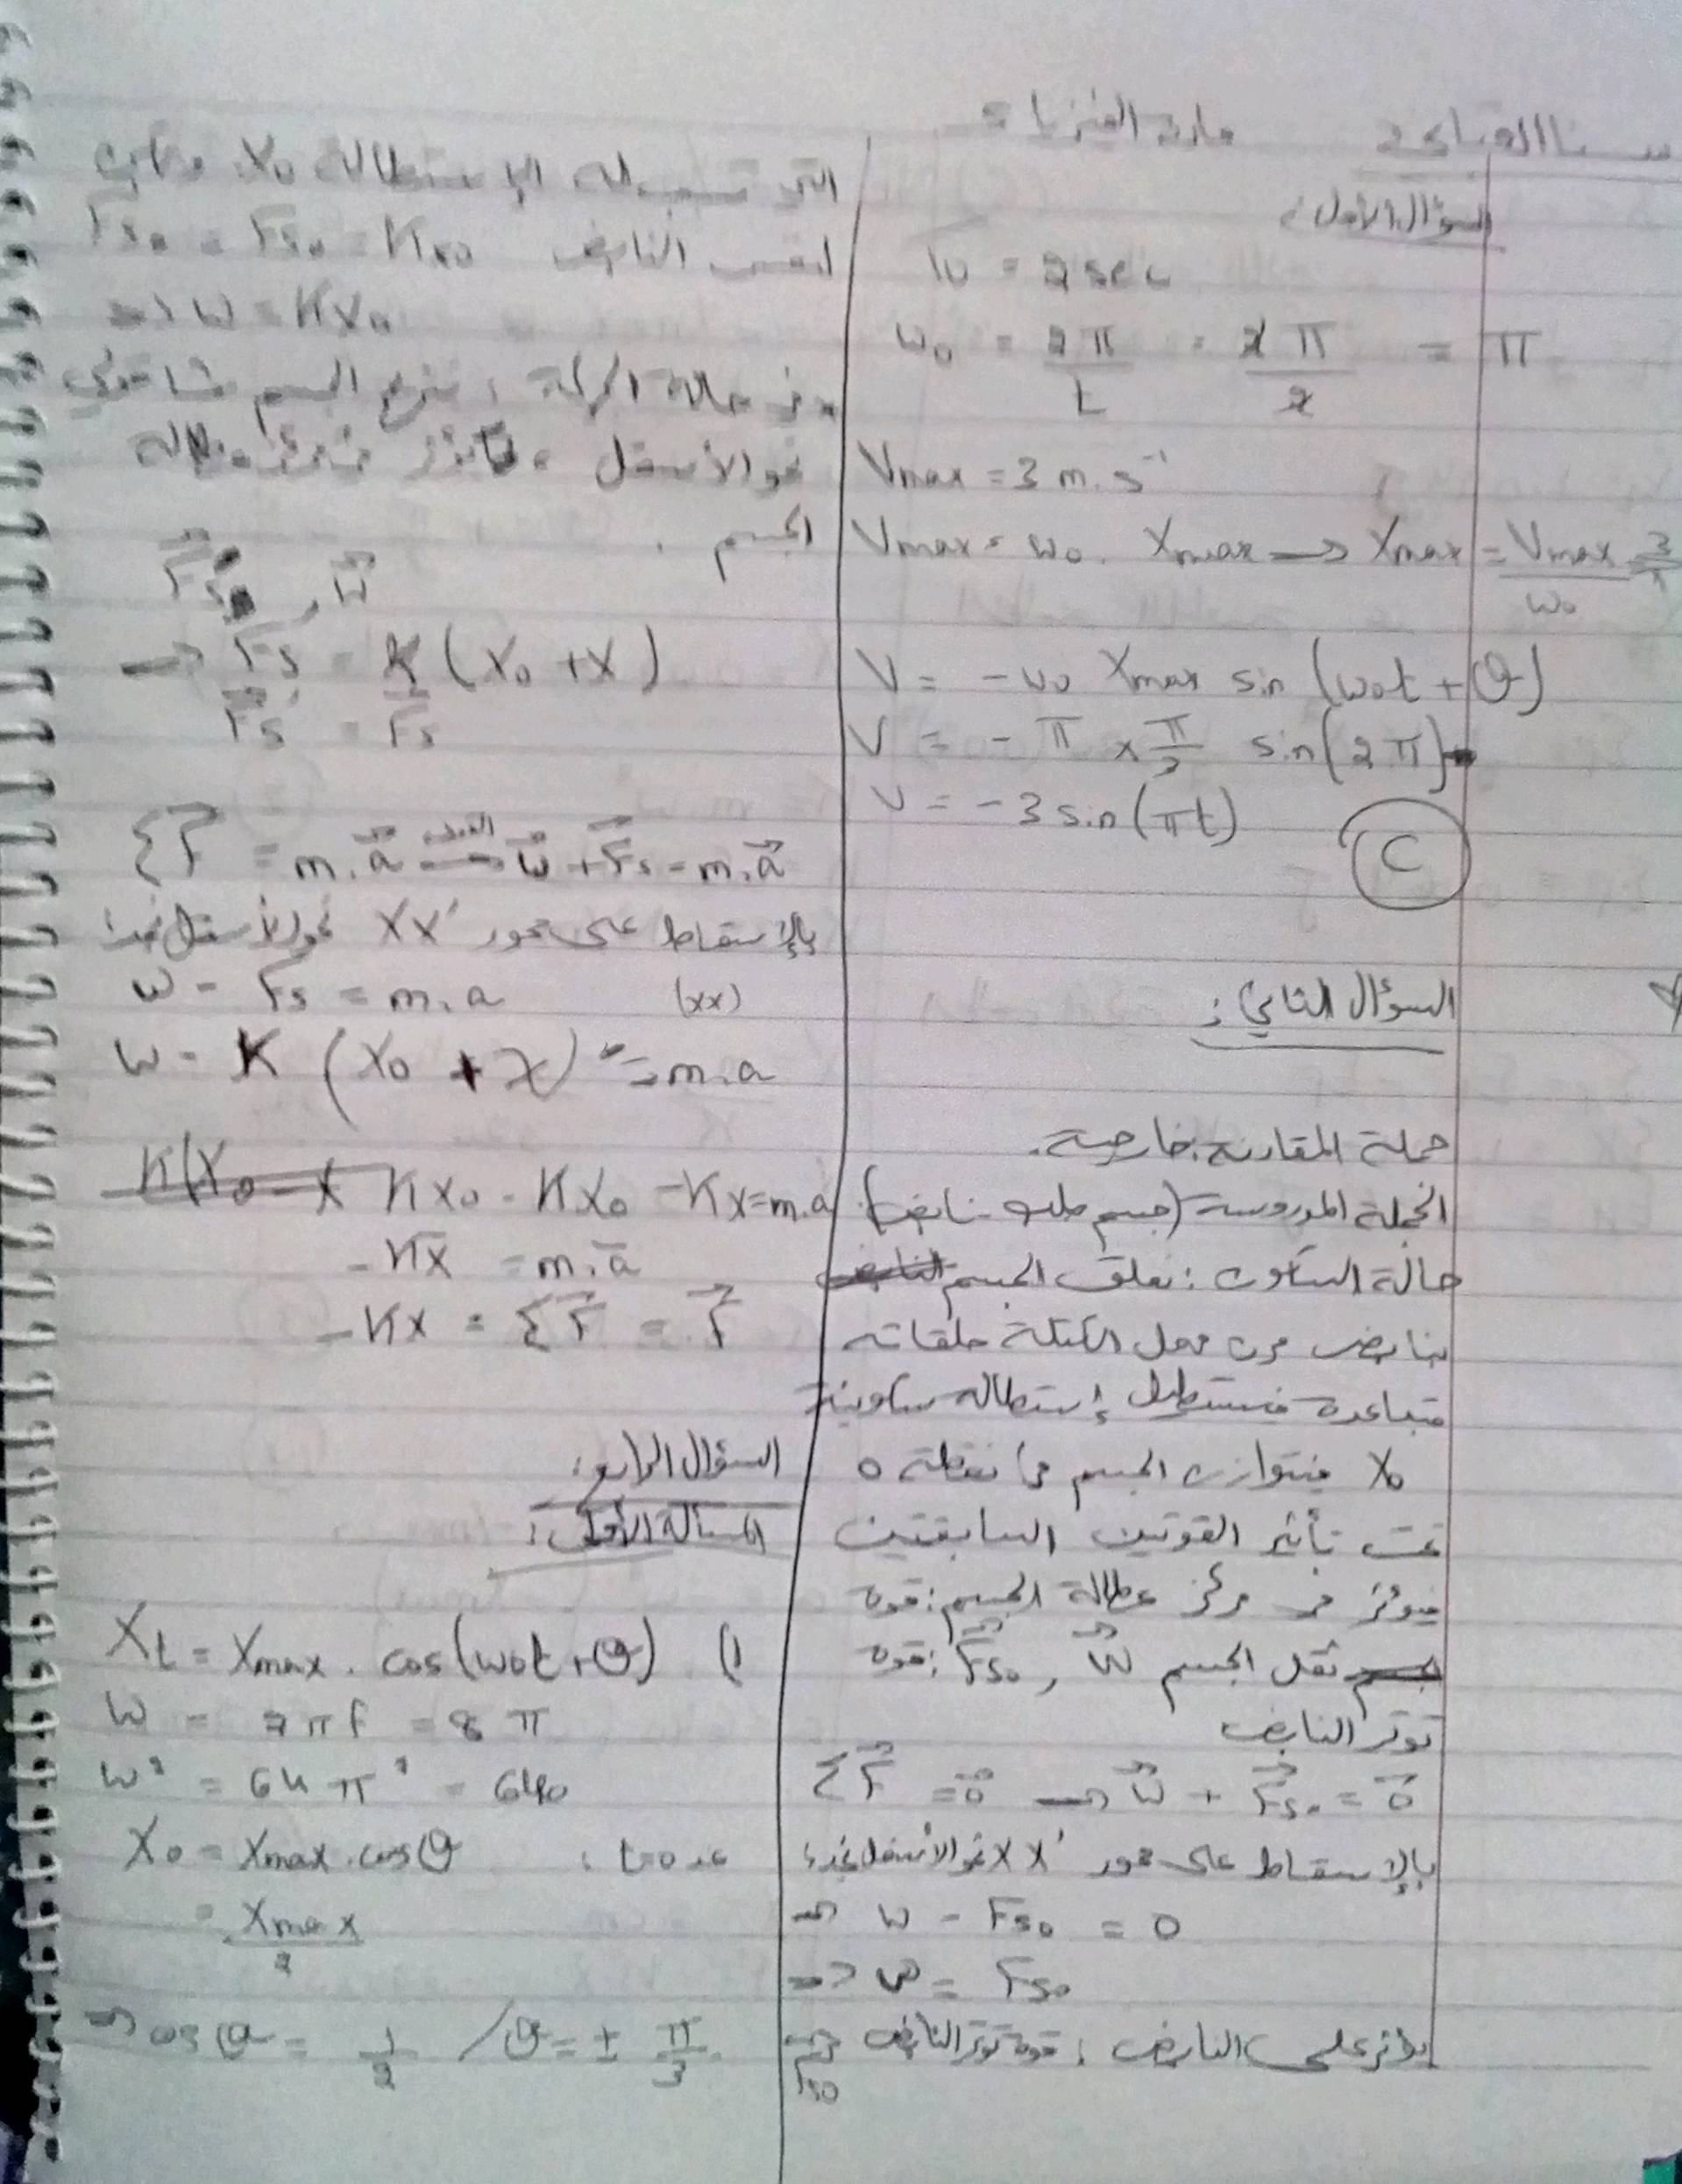 مادة الفيزياء
السؤال الأول:
T0 = 2 sec
ω0 = 2π/t = 2π/2 = π
Vmax = 3 m.s⁻¹
Vmax = ω0 . Xmax → Xmax = Vmax/ω0 = 3/π
V = - ω0 Xmax sin (ω0t + φ)
V = - π × π/3 sin(2π)
V = - 3 sin(πt)
C
السؤال الثاني:
جملة المقارنة: خارجية.
الجملة المدروسة (جسم صلب - نابض)
حالة السكون: نعلق الجسم النابض
بنابض مرن مهمل الكتلة حلقاته
متباعدة فيستطيل إستطالة سكونية
x0 فيتوازن الجسم في نقطة o
تحت تأثير القوتين السابقتين
فيؤثر في مركز عطالة الجسم: قوة
جسم ثقل الجسم W⃗ , F⃗s0: قوة
توتر النابض
ΣF⃗ = 0⃗ → W⃗ + F⃗s0 = 0⃗
بالإسقاط على محور xx' نحو الأسفل نجد:
⇒ W - Fs0 = 0
⇒ W = Fs0
يؤثر على النابض: قوة توتر النابض F⃗'s0
التي تسبب له الإستطالة X0
لنفس النابض F's0 = Fs0 = Kx0
⇒ W = KX0
في حالة الحركة: يزيح الجسم شاقولي
نحو الأسفل
الجسم.
F⃗s , W⃗
→ Fs = K (X0 + X)
F's = Fs
ΣF⃗ = m.a⃗ → W⃗ + F⃗s = m.a⃗
بالإسقاط على محور XX' نحو الأسفل نجد:
W - Fs = m.a (xx)
W - K (X0 + X) = m.a
K(X0 - X KX0 - KX0 - Kx = m.a
- Kx̄ = m.ā
- Kx = ΣF⃗ = F⃗
السؤال الرابع:
المسألة الأولى:
1) Xt = Xmax . cos(ω0t + φ)
W = 2πf = 8π
W² = 64π² = 640
عند t=0: X0 = Xmax . cosφ
= Xmax/2
⇒ cosφ = 1/2 / φ = ± π/3